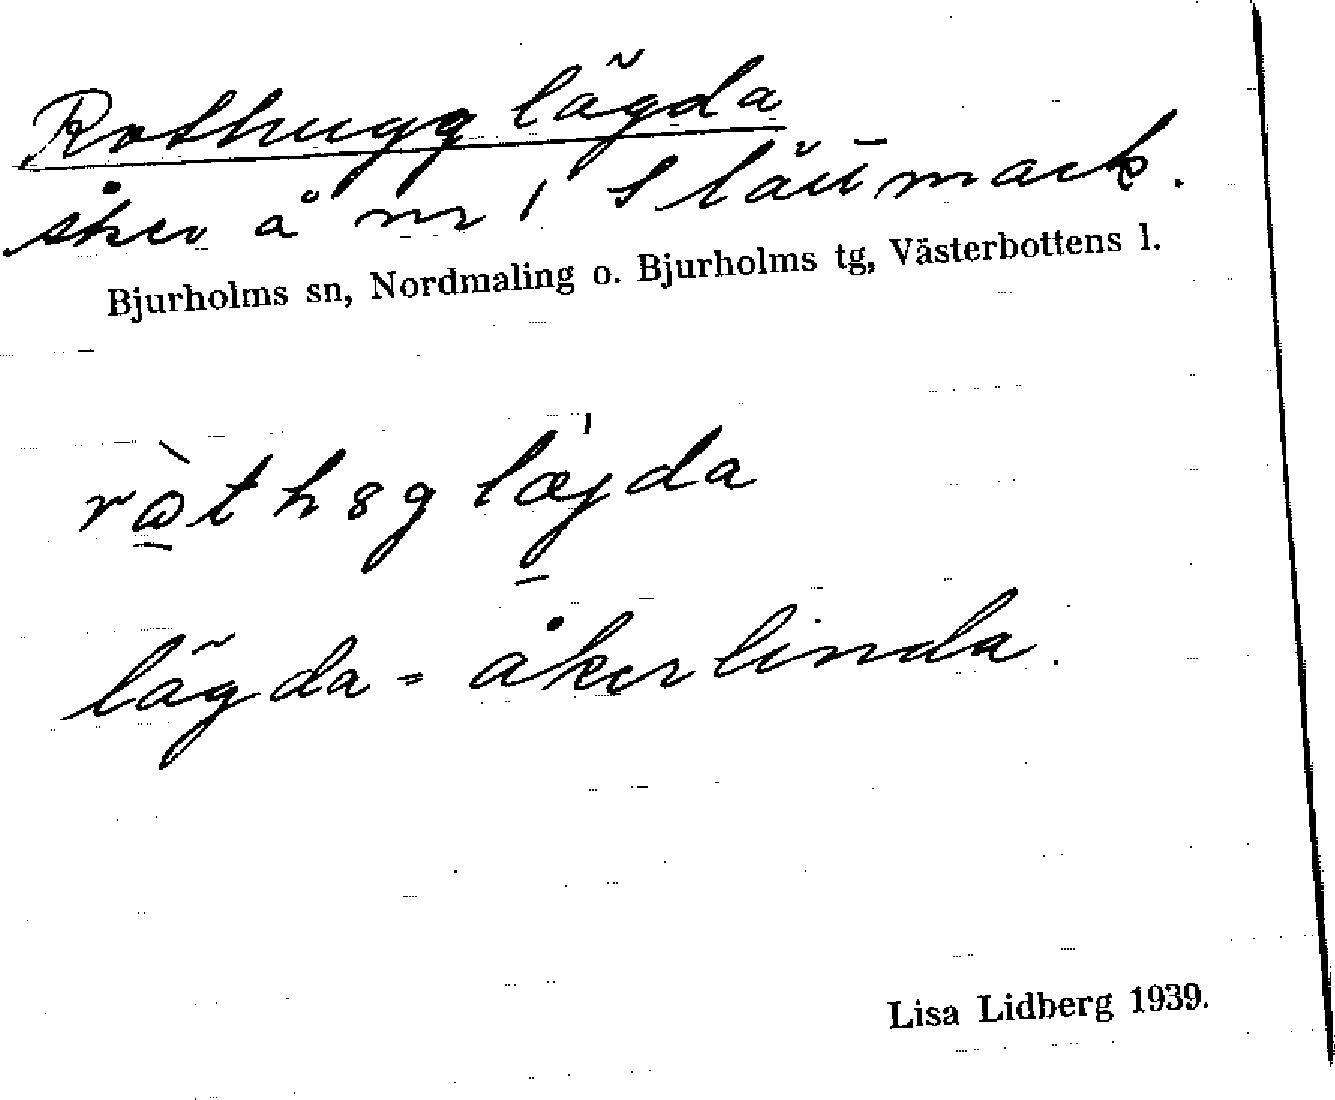 Rothugglägda
åker å nr 1 Slättmark.
Bjurholms sn, Nordmaling o. Bjurholms tg, Västerbottens l.
lägda = åkerlinda.
Lisa Lidberg 1939.